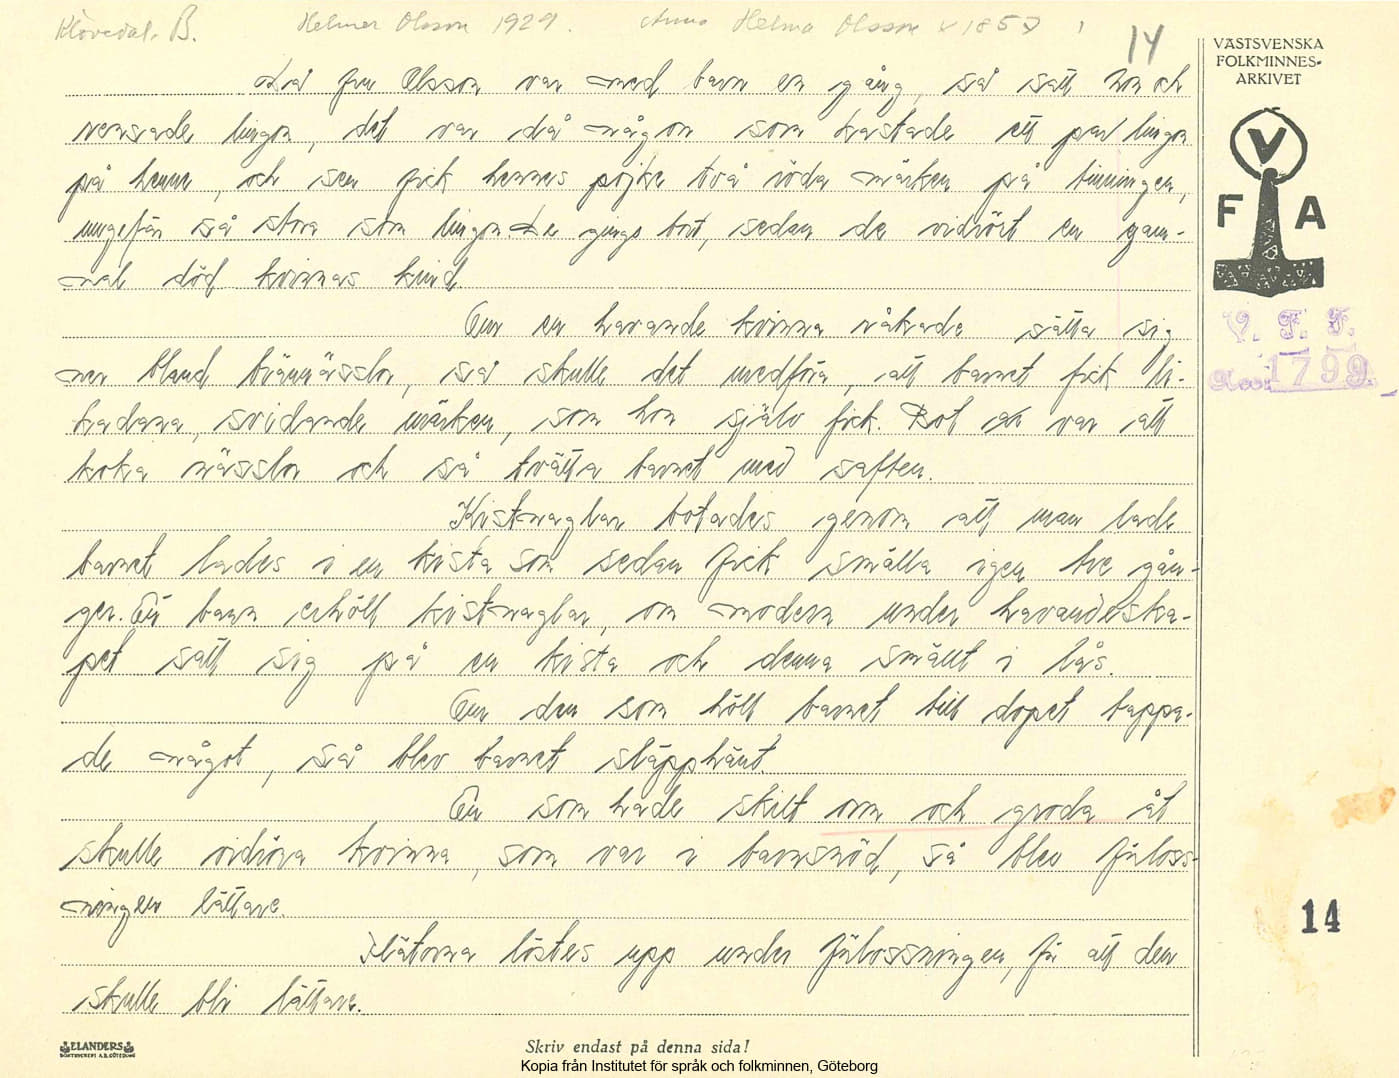 Klövedal. B. Helmer Olsson 1929. Anna Helma Olsson f. 1857
14
VÄSTSVENSKA
FOLKMINNES-
ARKIVET
V
F A
V. F. F.
Acc: 1799.
Då fru Olsson var med barn en gång, så satt hon och
rensade lingon, det var då någon som kastade ett par lingon
på henne, och sen fick hennes pojke två röda märken på tinningen,
ungefär så stora som lingon. De gings bort, sedan de vidrört en gam-
mal död kvinnas kind.
Om en havande kvinna råkade sätta sig
ner bland brännässlor, så skulle det medföra, att barnet fick li-
kadana, svidande märken, som hon själv fick. Bot var att
koka nässlor och så tvätta barnet med saften.
Kistnaglar botades genom att man lade
barnet lades i en kista som sedan fick smälla igen tre gån-
ger. Ett barn erhöll kistnaglar, om modern under havandeska-
pet satt sig på en kista och denna smällt i lås.
Om den som höll barnet till dopet tappa-
de något, så blev barnet släpphänt.
En som hade skilt orm och groda åt
skulle vidröra kvinna, som var i barnsnöd, så blev förloss-
ningen lättare.
Flätorna löstes upp under förlossningen, för att den
skulle bli lättare.
14
ELANDERS
BOKTRYCKERI A.B. GÖTEBORG
Skriv endast på denna sida!
Kopia från Institutet för språk och folkminnen, Göteborg